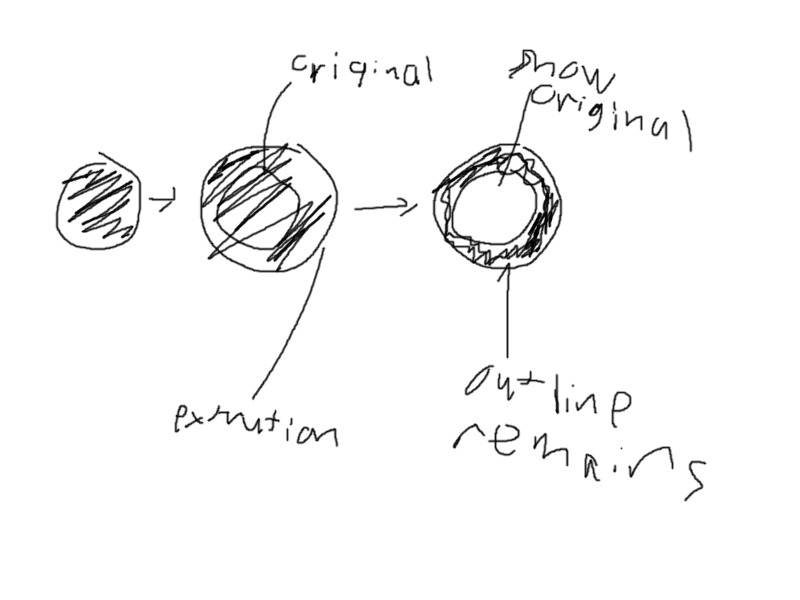 original
show
original
extrution
outline
remains